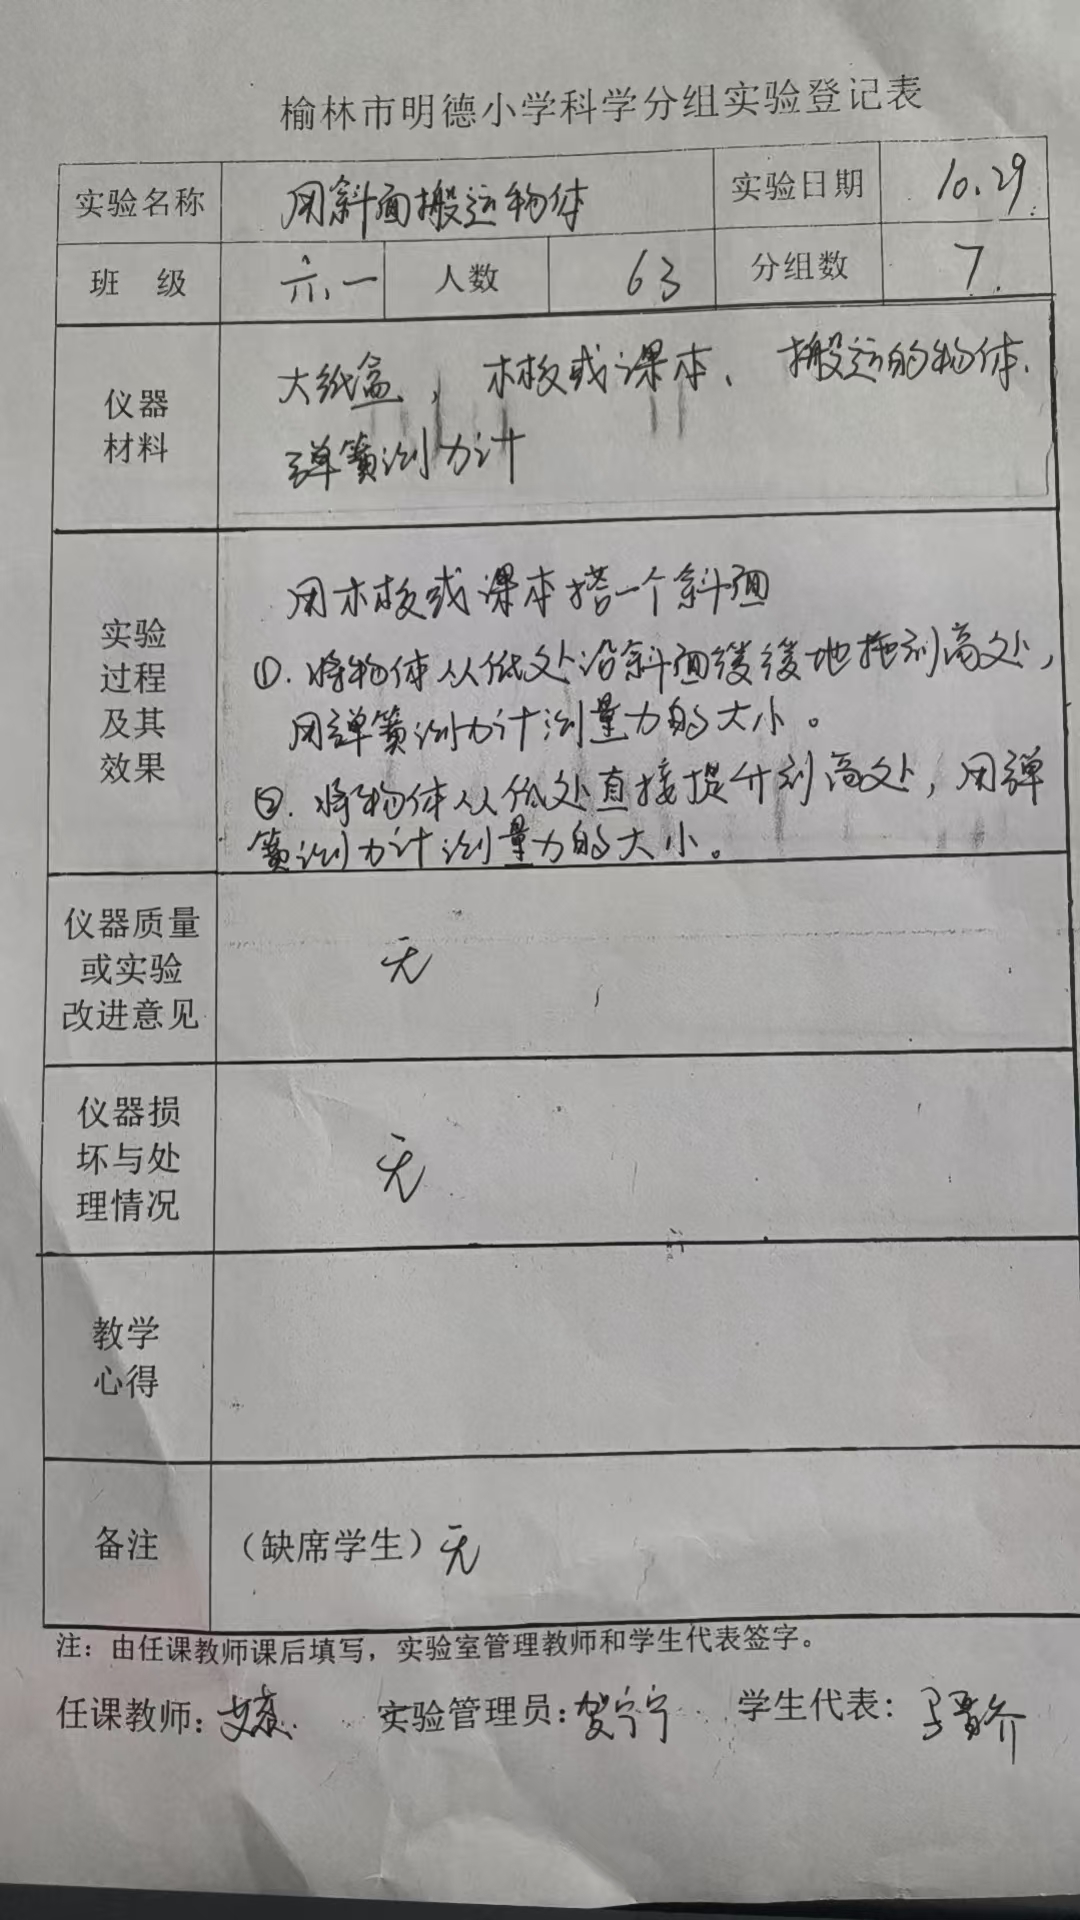 榆林市明德小学科学分组实验登记表
实验名称 用斜面搬运物体 实验日期 10.29.
班 级 六.一 人数 63 分组数 7.
仪器
材料
大纸盒，木板或课本、搬运的物体、
弹簧测力计
实验
过程
及其
效果
用木板或课本搭一个斜面
①.将物体从低处沿斜面缓缓地拖到高处，
用弹簧测力计测量力的大小。
②.将物体从低处直接提升到高处，用弹
簧测力计测量力的大小。
仪器质量
或实验
改进意见
无
仪器损
坏与处
理情况
无
教学
心得
备注 （缺席学生）无
注：由任课教师课后填写，实验室管理教师和学生代表签字。
任课教师： 实验管理员：贺宁宁 学生代表：